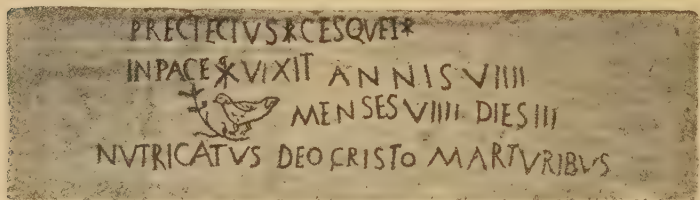 PRECTECTVS ⳩ CESQVET ⳩
IN PACE ⳩ VIXIT ANNIS VIIII
MENSES VIIII DIES III
NVTRICATVS DEO CRISTO MARTVRIBVS